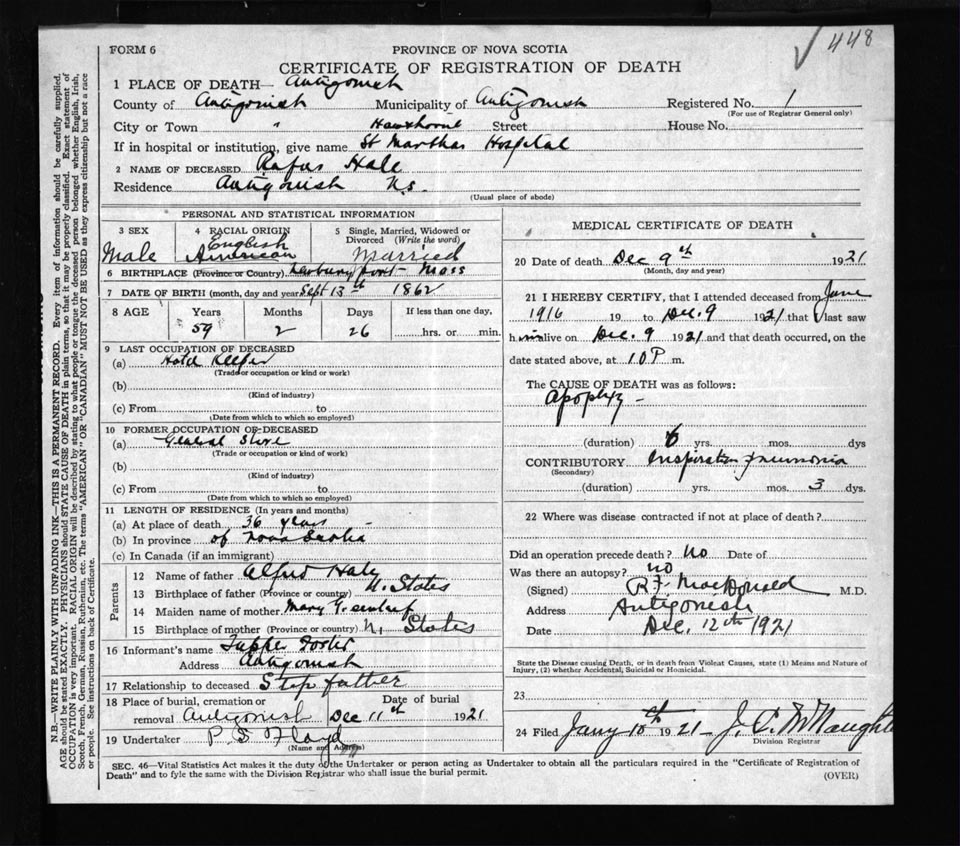 448
FORM 6
PROVINCE OF NOVA SCOTIA
CERTIFICATE OF REGISTRATION OF DEATH
1 PLACE OF DEATH— Antigonish
County of Antigonish Municipality of Antigonish Registered No. 1
(For use of Registrar General only)
City or Town " Hawthorne Street House No.
If in hospital or institution, give name St Marthas Hospital
2 NAME OF DECEASED Rufus Hale
Residence Antigonish N.S.
(Usual place of abode)
PERSONAL AND STATISTICAL INFORMATION
3 SEX Male
4 RACIAL ORIGIN English American
5 Single, Married, Widowed or Divorced (Write the word) Married
6 BIRTHPLACE (Province or Country) Newburyport Mass
7 DATE OF BIRTH (month, day and year) Sept 13th 1862
8 AGE Years Months Days If less than one day,
59 2 26 hrs. or min.
9 LAST OCCUPATION OF DECEASED
(a) Hotel Keeper
(Trade or occupation or kind or work)
(b)
(Kind of industry)
(c) From to
(Date from which to which so employed)
10 FORMER OCCUPATION OF DECEASED
(a) General Store
(Trade or occupation or kind of work)
(b)
(Kind of industry)
(c) From to
(Date from which to which so employed)
11 LENGTH OF RESIDENCE (In years and months)
(a) At place of death 36 years –
(b) In province of Nova Scotia
(c) In Canada (if an immigrant)
Parents
12 Name of father Alfred Hale
13 Birthplace of father (Province or country) U. States
14 Maiden name of mother Mary
15 Birthplace of mother (Province or country) U. States
16 Informant's name Tupper Foster
Address Antigonish
17 Relationship to deceased Step father
18 Place of burial, cremation or removal Antigonish
Date of burial Dec 11th 1921
19 Undertaker P. S. Floyd
(Name and Address)
MEDICAL CERTIFICATE OF DEATH
20 Date of death Dec 9th 1921
(Month, day and year)
21 I HEREBY CERTIFY, that I attended deceased from June
1916 19 to Dec. 9 1921 that I last saw
him alive on Dec. 9 1921 and that death occurred, on the
date stated above, at 10 P m.
The CAUSE OF DEATH was as follows:
Apoplexy –
(duration) 6 yrs. mos. dys
CONTRIBUTORY Inspiration pneumonia
(Secondary)
(duration) yrs. mos. 3 dys.
22 Where was disease contracted if not at place of death?
Did an operation precede death? No Date of
Was there an autopsy? no
(Signed) R.F. MacDonald M.D.
Address Antigonish
Date Dec. 12th 1921
State the Disease causing Death, or in death from Violent Causes, state (1) Means and Nature of
Injury, (2) whether Accidental, Suicidal or Homicidal.
23
24 Filed Jany 10th 1921 J. C. McNaughto
Division Registrar
SEC. 46—Vital Statistics Act makes it the duty of the Undertaker or person acting as Undertaker to obtain all the particulars required in the "Certificate of Registration of
Death" and to fyle the same with the Division Registrar who shall issue the burial permit.
(OVER)
N.B.—WRITE PLAINLY WITH UNFADING INK—THIS IS A PERMANENT RECORD. Every item of information should be carefully supplied.
AGE should be stated EXACTLY. PHYSICIANS should STATE CAUSE OF DEATH in plain terms, so that it may be properly classified. Exact statement of
OCCUPATION is very important. RACIAL ORIGIN will be described by stating to what people or tongue the deceased person belonged whether English, Irish,
Scotch, French, German, Russian, Ruthenian, etc. The terms "AMERICAN" OR "CANADIAN" MUST NOT BE USED as they express citizenship but not a race
or people. See instructions on back of Certificate.